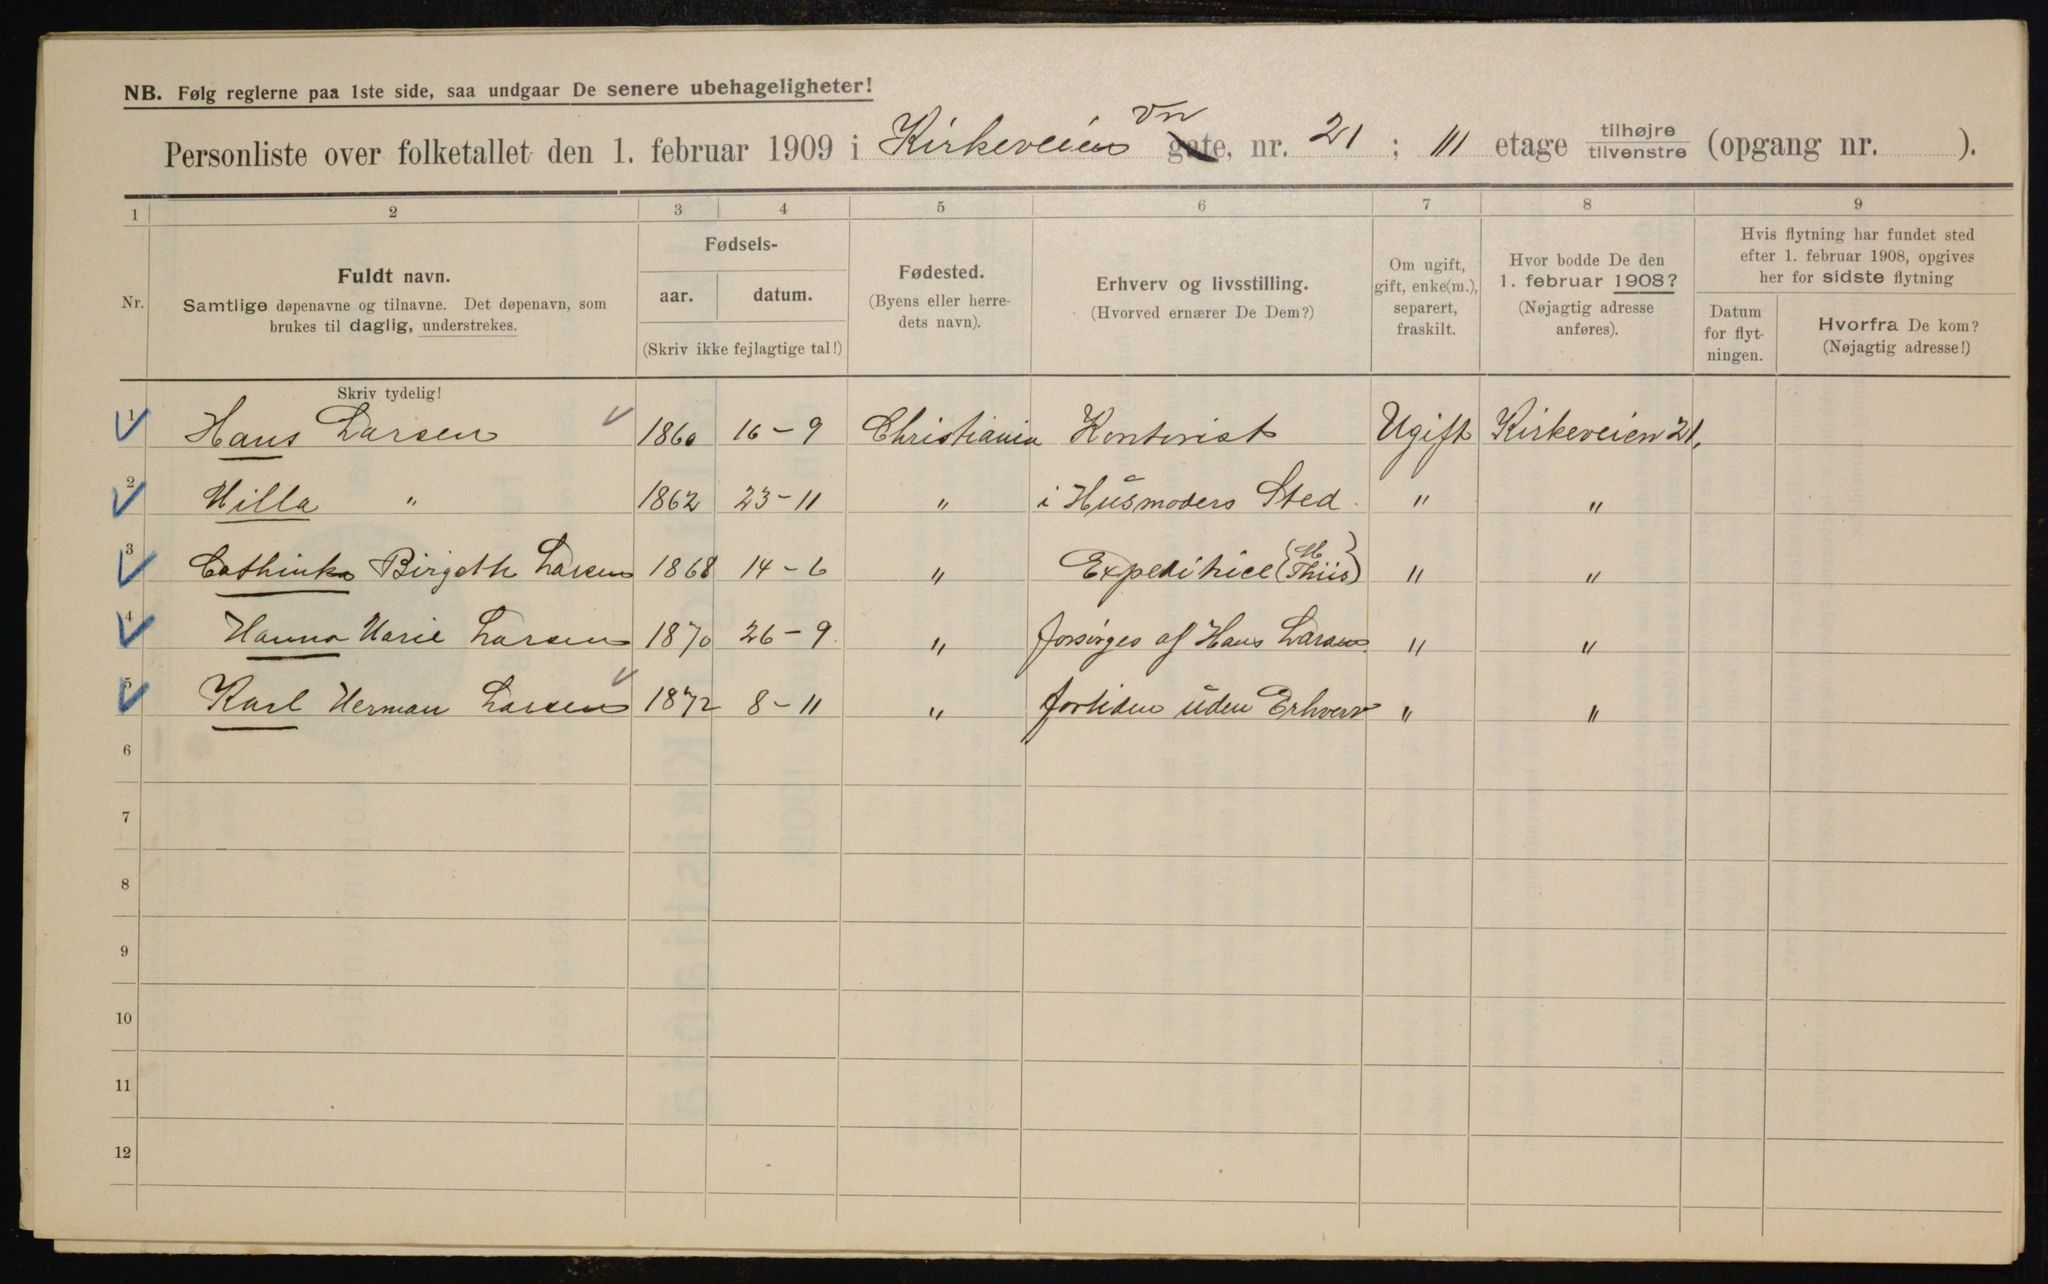 NB. Følg reglerne paa 1ste side, saa undgaar De senere ubehageligheter!
Personliste over folketallet den 1. februar 1909 i Kirkeveien vn gate, nr. 21 ; III etage tilhøjre tilvenstre (opgang nr. ).
1 2 3 4 5 6 7 8 9
Nr.
Fuldt navn.
Samtlige døpenavne og tilnavne. Det døpenavn, som
brukes til daglig, understrekes.
Skriv tydelig!
Fødsels-
aar. datum.
(Skriv ikke fejlagtige tal!)
Fødested.
(Byens eller herre-
dets navn).
Erhverv og livsstilling.
(Hvorved ernærer De Dem?)
Om ugift,
gift, enke(m.),
separert,
fraskilt.
Hvor bodde De den
1. februar 1908?
(Nøjagtig adresse
anføres).
Hvis flytning har fundet sted
efter 1. februar 1908, opgives
her for sidste flytning
Datum
for flyt-
ningen.
Hvorfra De kom?
(Nøjagtig adresse!)
1 Hans Larsen 1860 16-9 Christiania Kontorist Ugift Kirkeveien 21,
2 Milla " 1862 23-11 " i Husmoders Sted. " "
3 Cathinka Birgeth Larsen 1868 14-6 " Expeditrice (M Thiis) " "
4 Hanna Marie Larsen 1870 26-9. " forsørges af Hans Larsen " "
5 Karl Herman Larsen 1872 8-11 " fortiden uden Erhverv " "
6
7
8
9
10
11
12